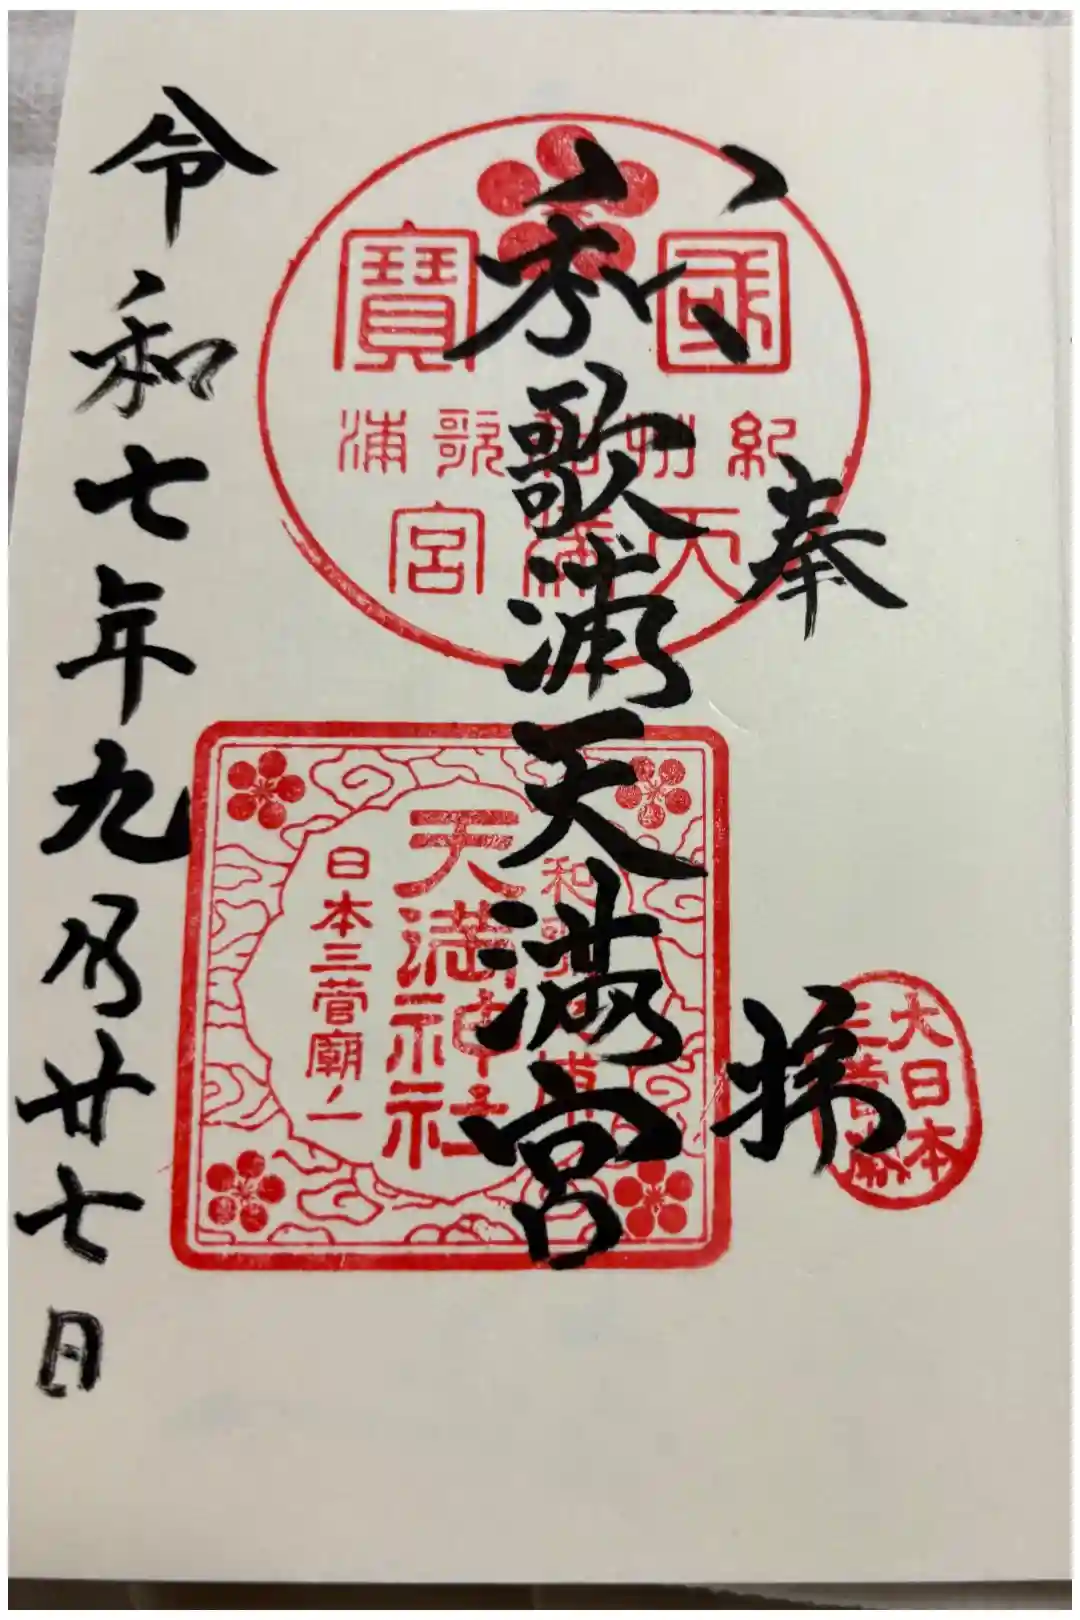 奉拝
大日本
三菅廟
和歌浦天満宮
國寳
紀州和歌浦
天満宮
和歌
天満神社
日本三菅廟ノ一
令和七年九月廿七日